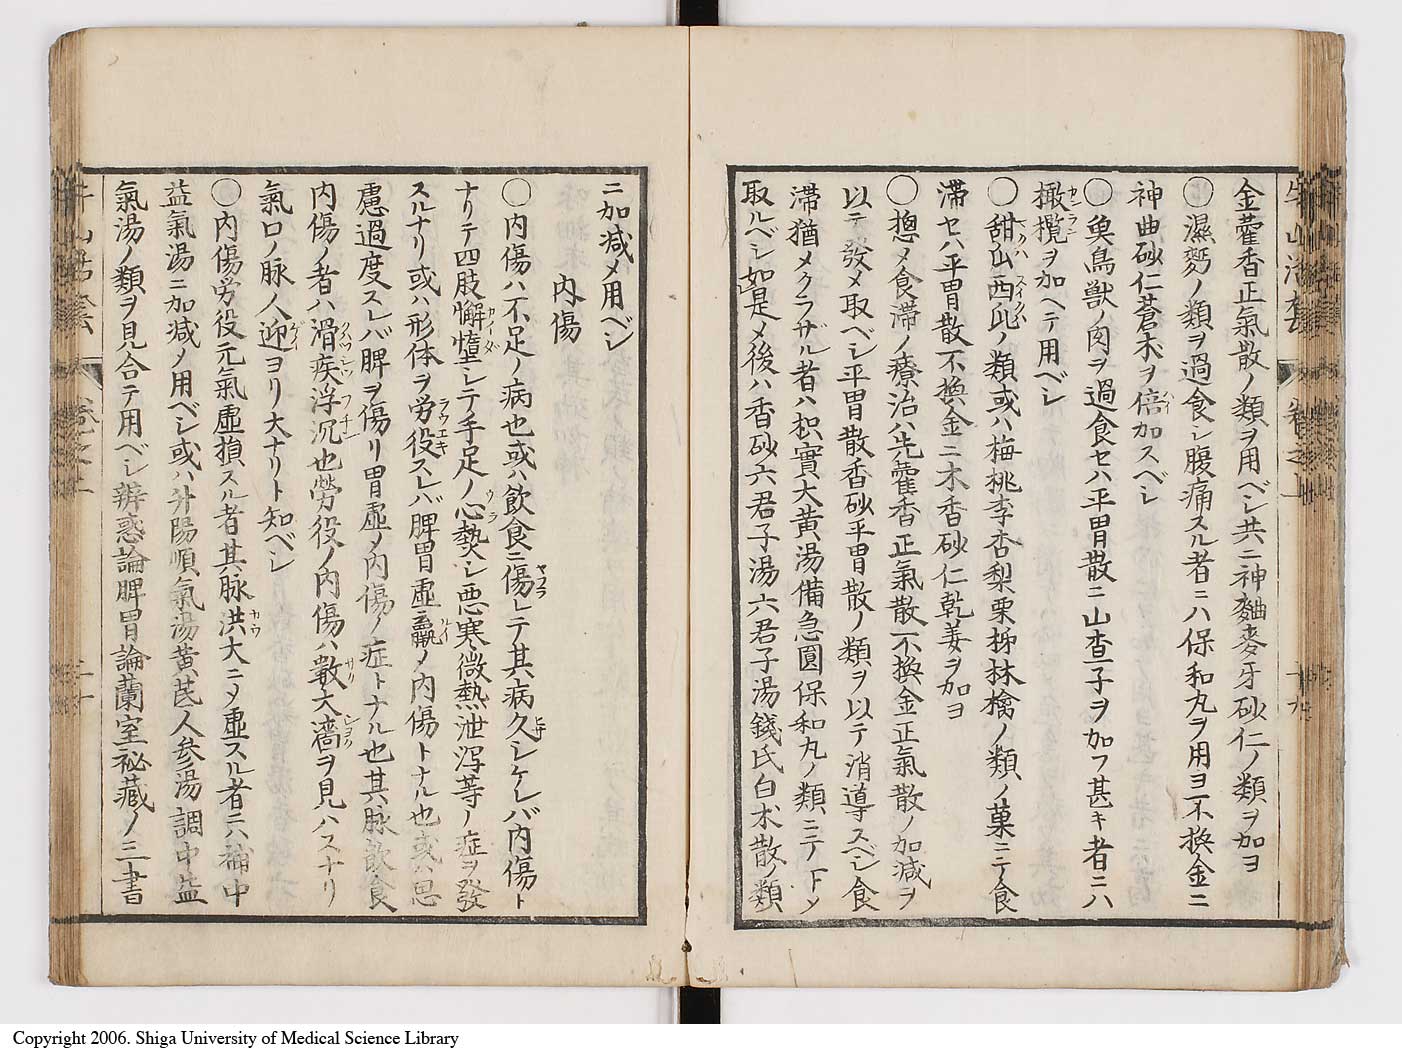 金藿香正氣散ノ類ヲ用ベシ共ニ神麯麥牙砂仁ノ類ヲ加ヨ
○濕麪ノ類ヲ過食シ腹痛スル者ニハ保和丸ヲ用ヨ不換金ニ
神曲砂仁蒼朮ヲ倍加スベシ
○魚鳥獸ノ肉ヲ過食セハ平胃散ニ山査子ヲ加フ甚キ者ニハ
橄欖ヲ加ヘテ用ベシ
○甜瓜西瓜ノ類或ハ梅桃李杏梨栗柹林檎ノ類ノ菓ニテ食
滯セハ平胃散不換金ニ木香砂仁乾姜ヲ加ヨ
○摠メ食滯ノ療治ハ先藿香正氣散不換金正氣散ノ加減ヲ
以テ發メ取ベシ平胃散香砂平胃散ノ類ヲ以テ消導スベシ食
滯猶メクラザル者ハ枳實大黃湯備急圓保和丸ノ類ニテ下メ
取ルベシ如是メ後ハ香砂六君子湯六君子湯錢氏白朮散ノ類
ニ加減メ用ベシ
内傷
○内傷ハ不足ノ病也或ハ飲食ニ傷レテ其病久シケレバ内傷ト
ナリテ四肢懈惰シテ手足ノ心熱シ悪寒微熱泄瀉等ノ症ヲ發
スルナリ或ハ形体ヲ労役スレバ脾胃虚羸メ内傷トナル也或ハ思
慮過度スレバ脾ヲ傷リ胃虚メ内傷ノ症トナル也其脉飲食
内傷ノ者ハ滑疾浮沉也勞役ノ内傷ハ數大濇ヲ見ハスナリ
氣口ノ脉人迎ヨリ大ナリト知ベシ
○内傷労役元氣虚損スル者其脉洪大ニメ虚スル者ニハ補中
益氣湯ニ加減メ用ベシ或ハ升陽順氣湯黃芪人参湯調中益
氣湯ノ類ヲ見合テ用ベシ辨惑論脾胃論蘭室祕藏ノ三書